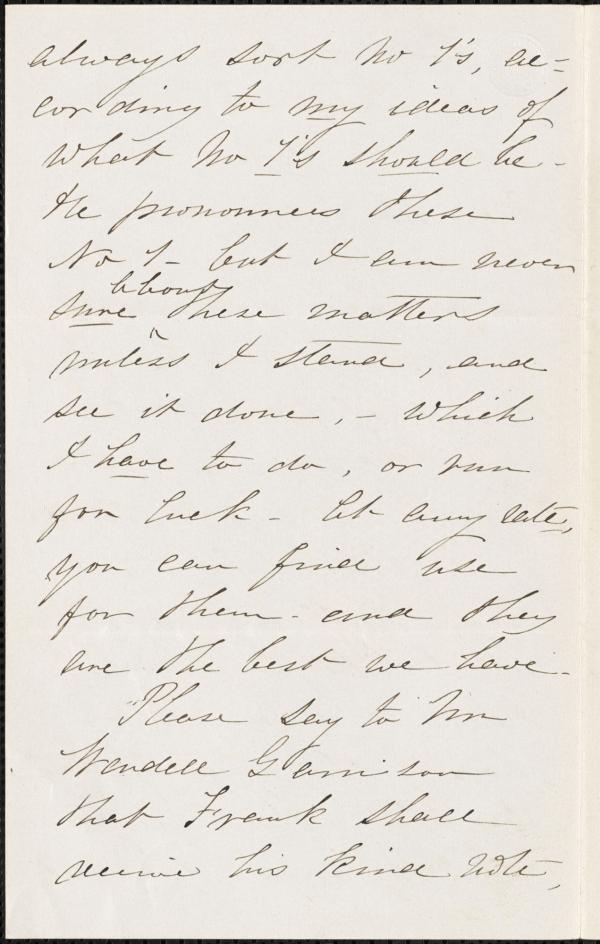 always sort No 1's, ac=
cording to my ideas of
what No 1's should be -
He pronounces these
No 1 - but I am never
about
sure these matters
unless I stand, and
see it done, - which
I have to do, or run
for luck - At any rate,
you can find use
for them - and they
are the best we have -
Please say to Mr
Wendell Garrison
that Frank shall
receive his kind note,